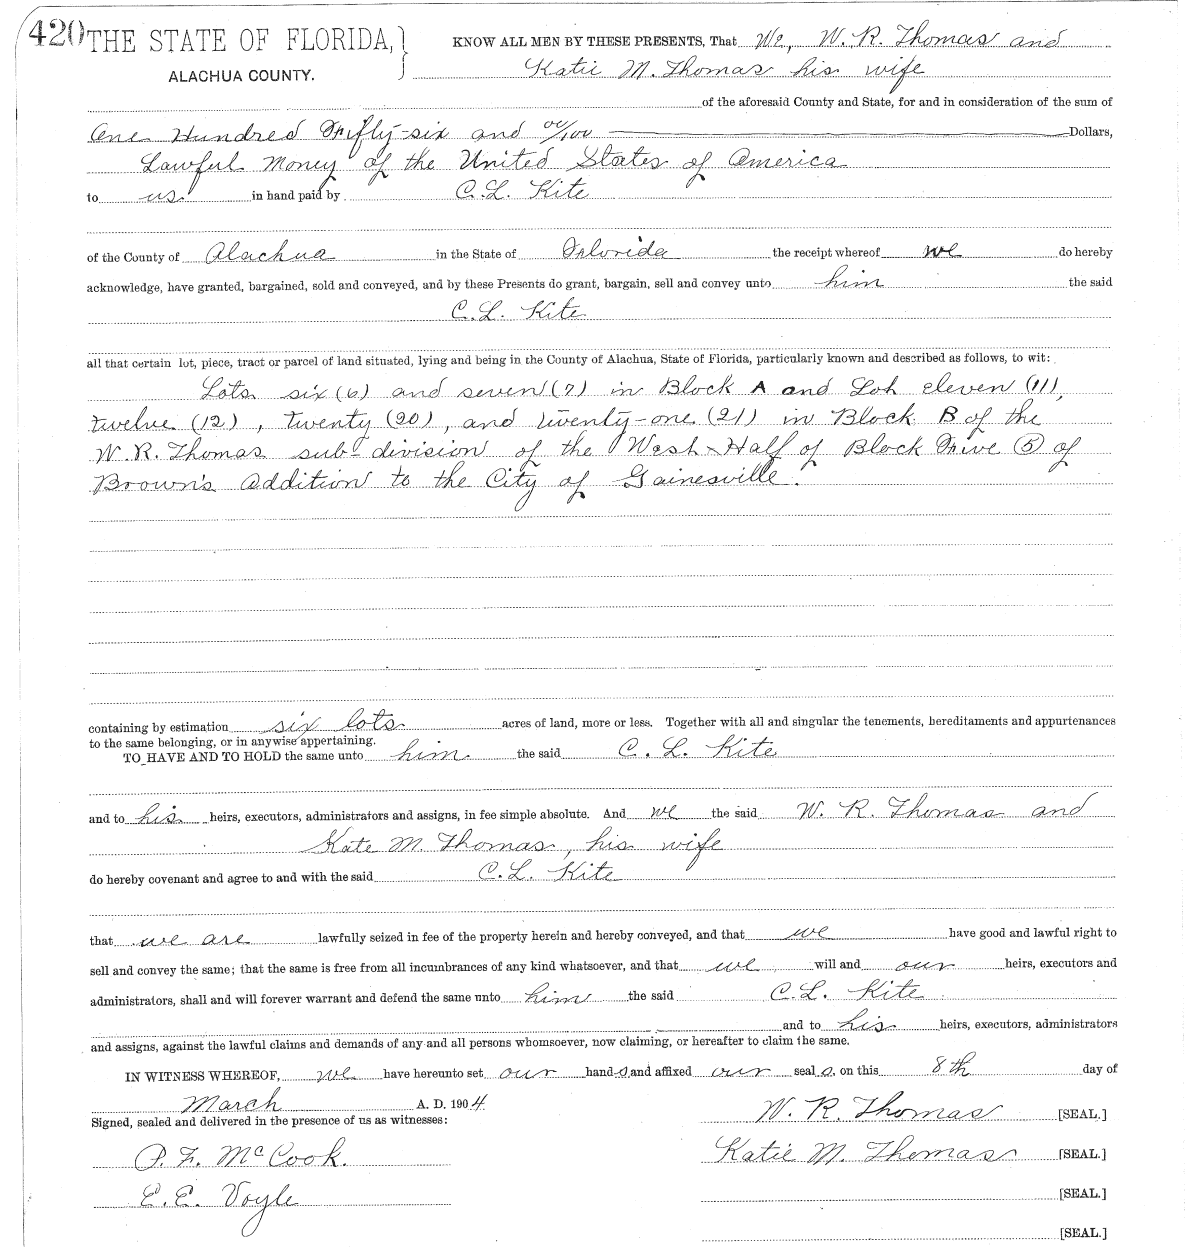 420 THE STATE OF FLORIDA, } KNOW ALL MEN BY THESE PRESENTS, That We, W. R. Thomas and
ALACHUA COUNTY. Katie M. Thomas his wife
of the aforesaid County and State, for and in consideration of the sum of
One Hundred Fifty-six and 00/100 Dollars,
Lawful Money of the United States of America
to us in hand paid by C. L. Kite
of the County of Alachua in the State of Florida the receipt whereof we do hereby
acknowledge, have granted, bargained, sold and conveyed, and by these Presents do grant, bargain, sell and convey unto him the said
C. L. Kite
all that certain lot, piece, tract or parcel of land situated, lying and being in the County of Alachua, State of Florida, particularly known and described as follows, to wit:
Lots six (6) and seven (7) in Block A and Loh eleven (11),
twelve (12), twenty (20), and twenty-one (21) in Block B of the
W. R. Thomas sub-division of the West Half of Block Five (5) of
Brown's addition to the City of Gainesville.
containing by estimation six lots acres of land, more or less. Together with all and singular the tenements, hereditaments and appurtenances
to the same belonging, or in anywise appertaining.
TO HAVE AND TO HOLD the same unto him the said C. L. Kite
and to his heirs, executors, administrators and assigns, in fee simple absolute. And we the said W. R. Thomas and
Kate M. Thomas, his wife
do hereby covenant and agree to and with the said C. L. Kite
that we are lawfully seized in fee of the property herein and hereby conveyed, and that we have good and lawful right to
sell and convey the same; that the same is free from all incumbrances of any kind whatsoever, and that we will and our heirs, executors and
administrators, shall and will forever warrant and defend the same unto him the said C. L. Kite
and to his heirs, executors, administrators
and assigns, against the lawful claims and demands of any and all persons whomsoever, now claiming, or hereafter to claim the same.
IN WITNESS WHEREOF, we have hereunto set our hands and affixed our seals. on this 8th day of
March A. D. 1904 W. R. Thomas [SEAL.]
Signed, sealed and delivered in the presence of us as witnesses:
P. F. McCook. Katie M. Thomas [SEAL.]
E. E. Voyle [SEAL.]
[SEAL.]